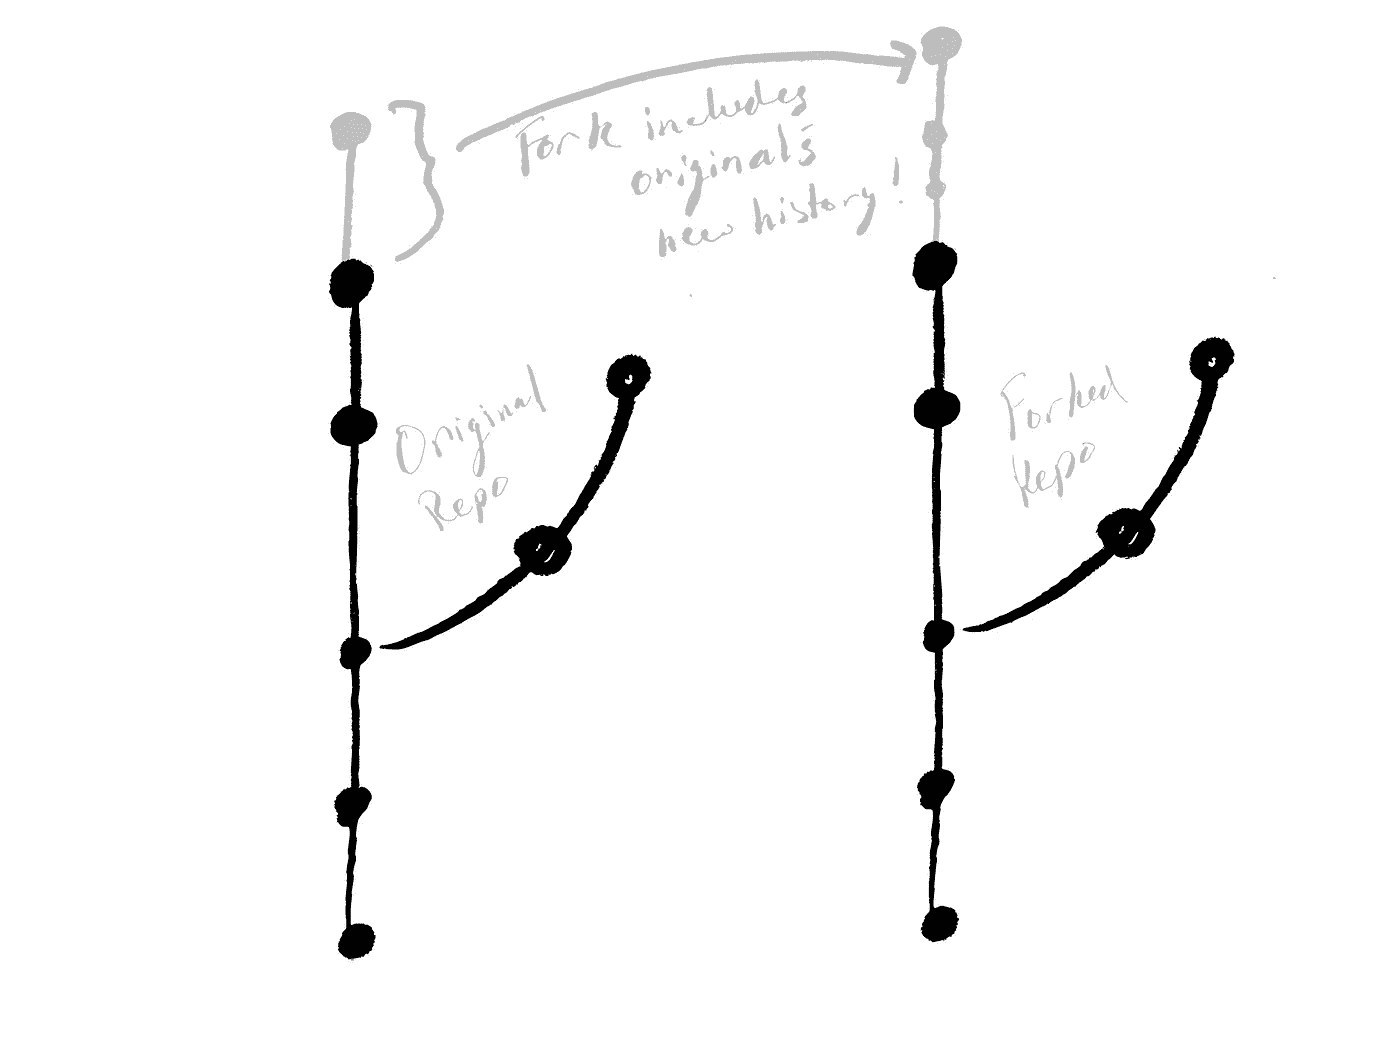 Fork includes
original's
new history!
Original
Repo
Forked
Repo